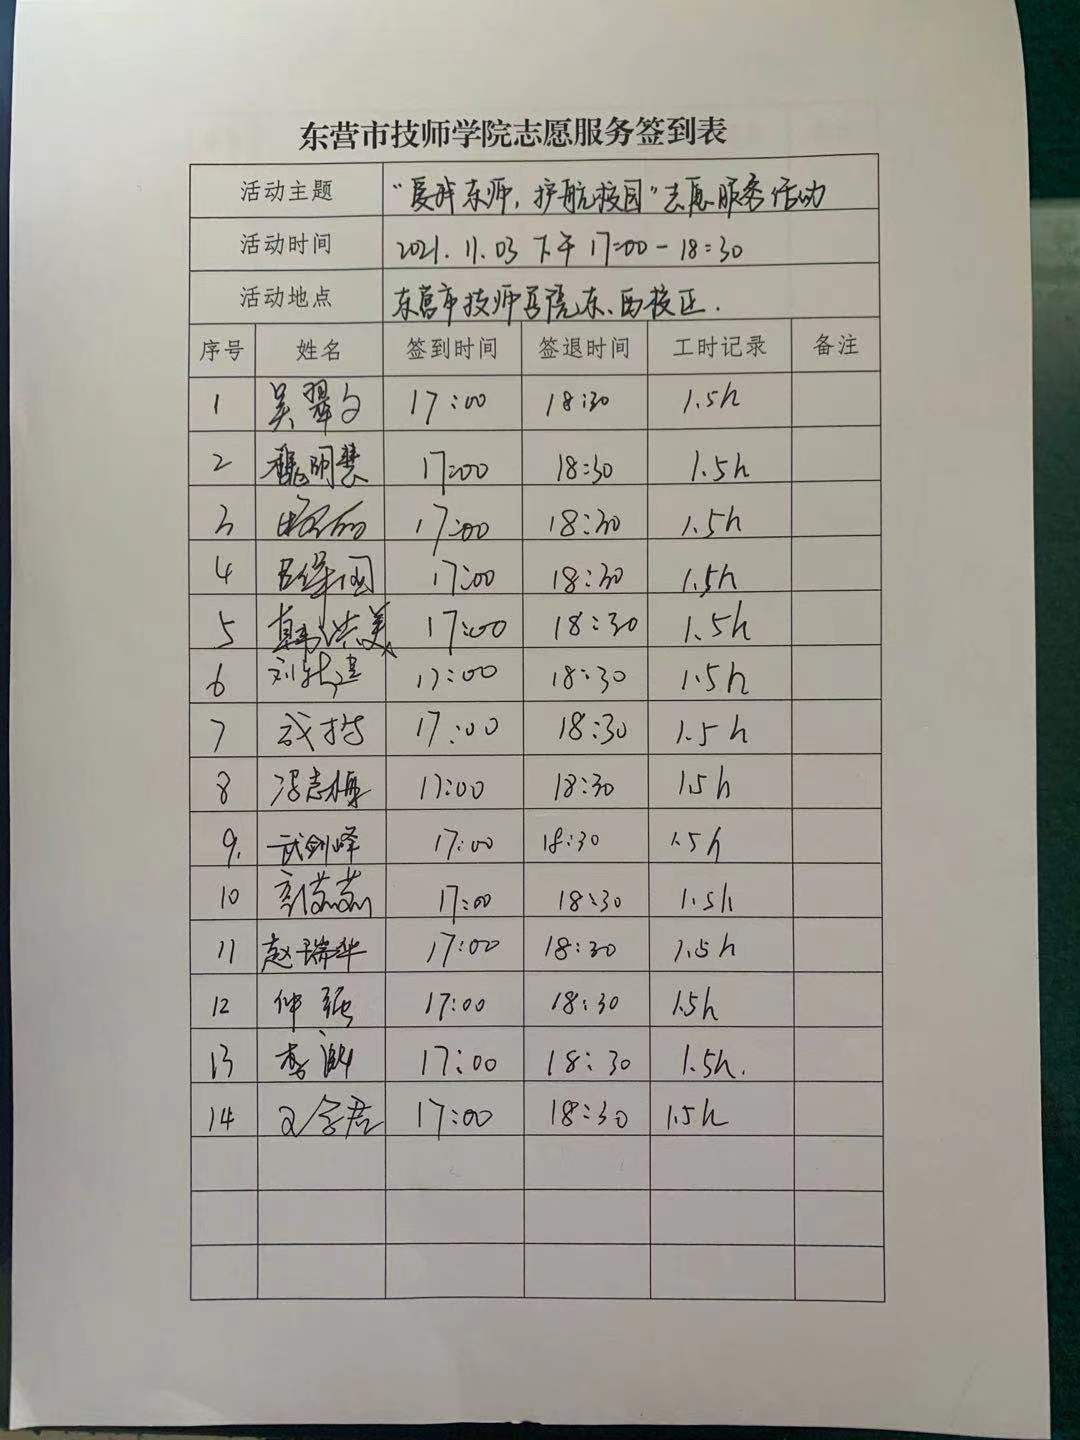 东营市技师学院志愿服务签到表
活动主题 "爱我东师,护航校园"志愿服务活动
活动时间 2021.11.03 下午 17:00-18:30
活动地点 东营市技师学院东、西校区.
序号 姓名 签到时间 签退时间 工时记录 备注
1 吴翠文 17:00 18:30 1.5h
2 魏明慧 17:00 18:30 1.5h
3 17:00 18:30 1.5h
4 17:00 18:30 1.5h
5 韩洪美 17:00 18:30 1.5h
6 17:00 18:30 1.5h
7 17:00 18:30 1.5h
8 冯志梅 17:00 18:30 1.5h
9. 武剑峰 17:00 18:30 1.5h
10 17:00 18:30 1.5h
11 赵瑞华 17:00 18:30 1.5h
12 仲强 17:00 18:30 1.5h
13 李 17:00 18:30 1.5h.
14 17:00 18:30 1.5h